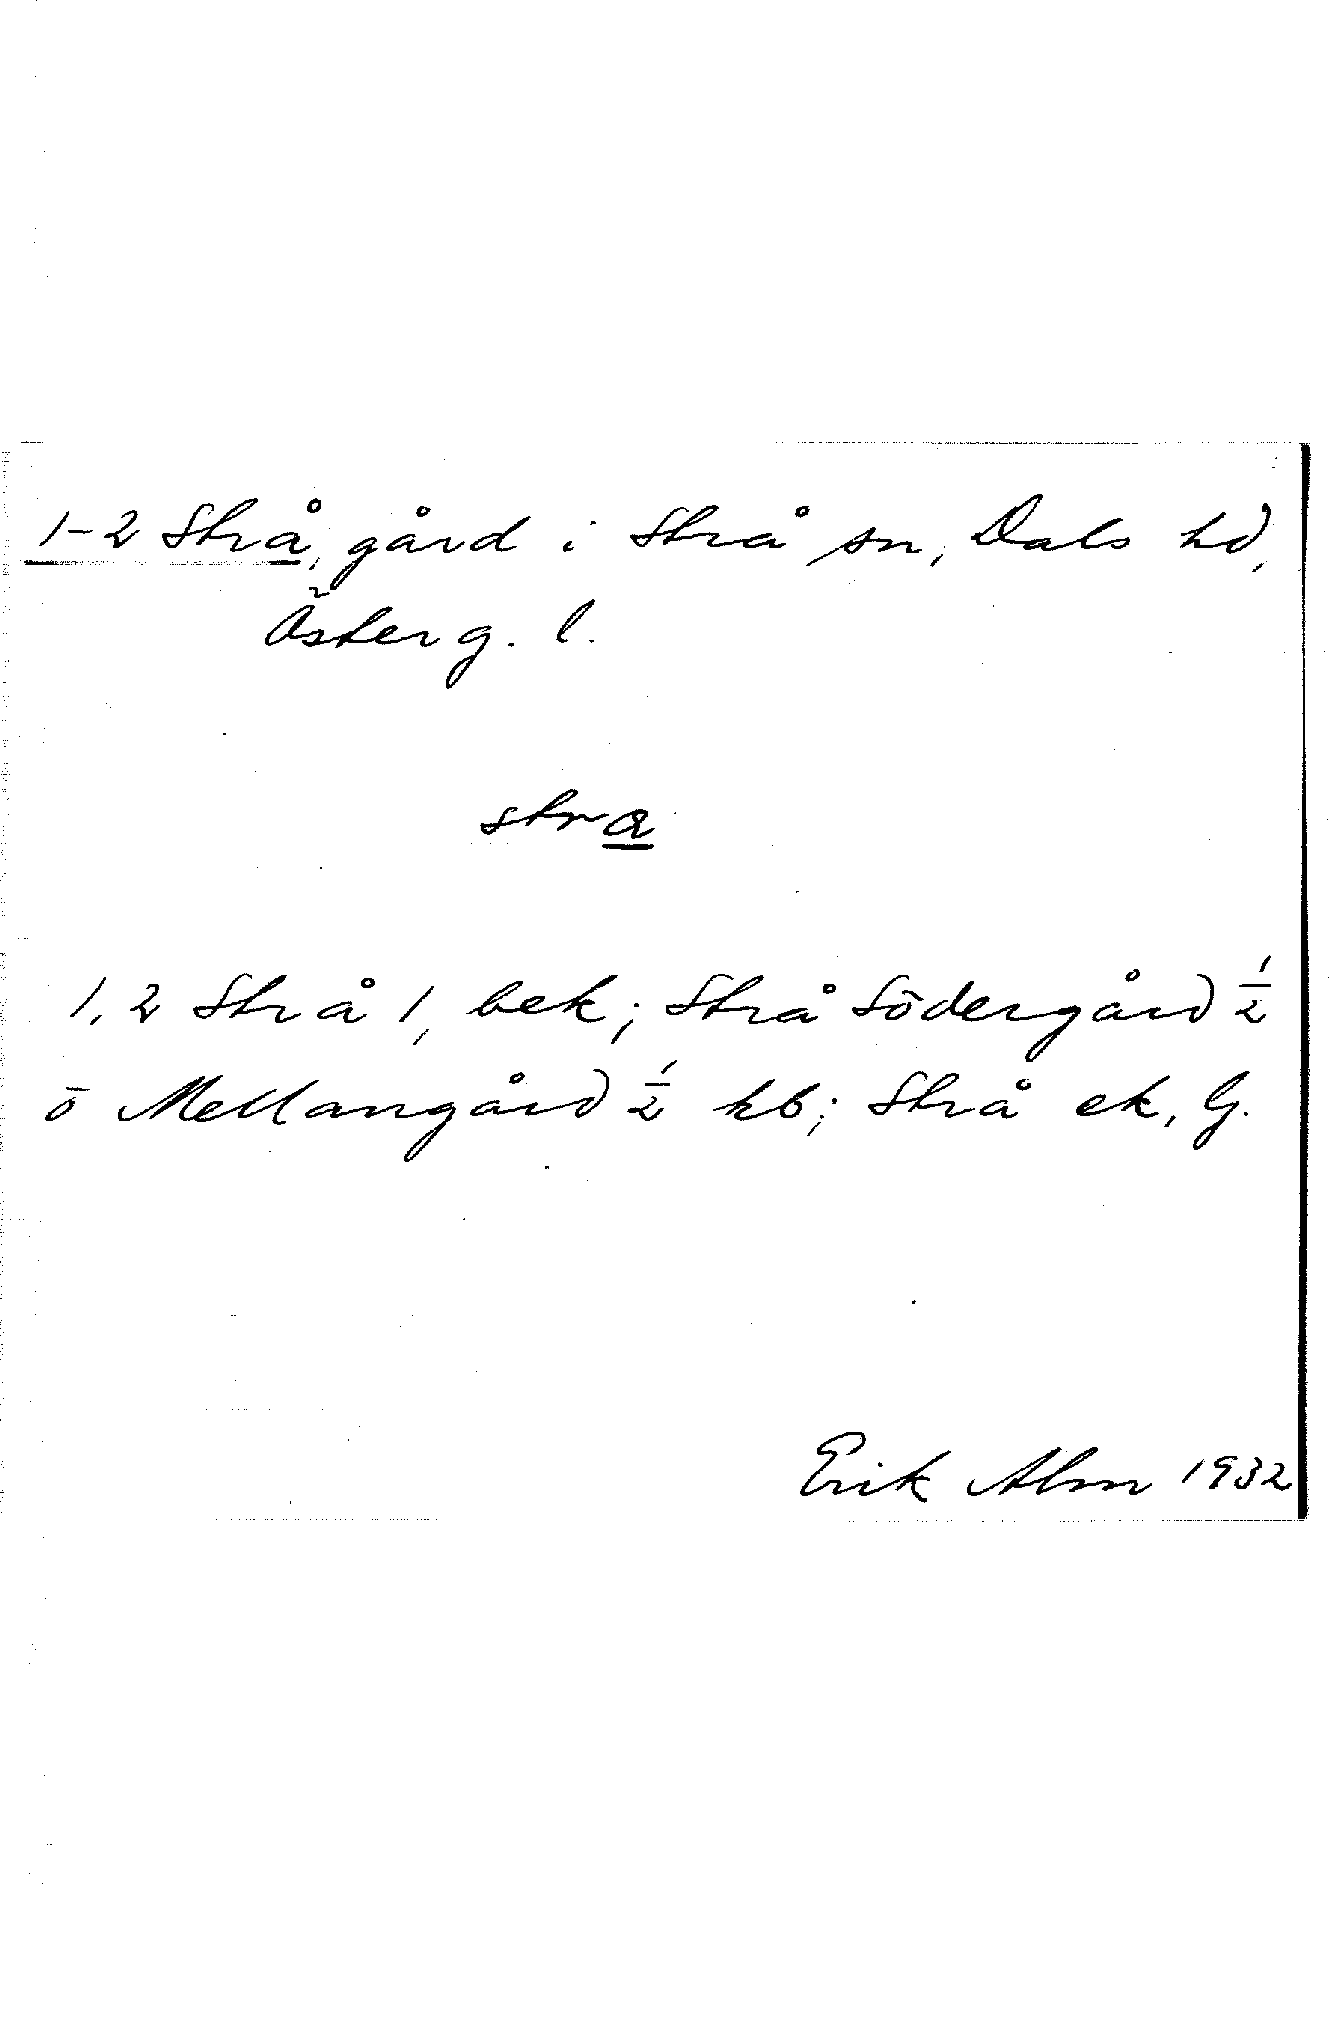 1-2 Strå, gård i Strå sn, Dals hd,
Österg. l.
stra
1,2 Strå 1, bek; Strå Södergård 1/2
o Mellangård 1/2 hb; Strå ek, G.
Erik Alm 1932